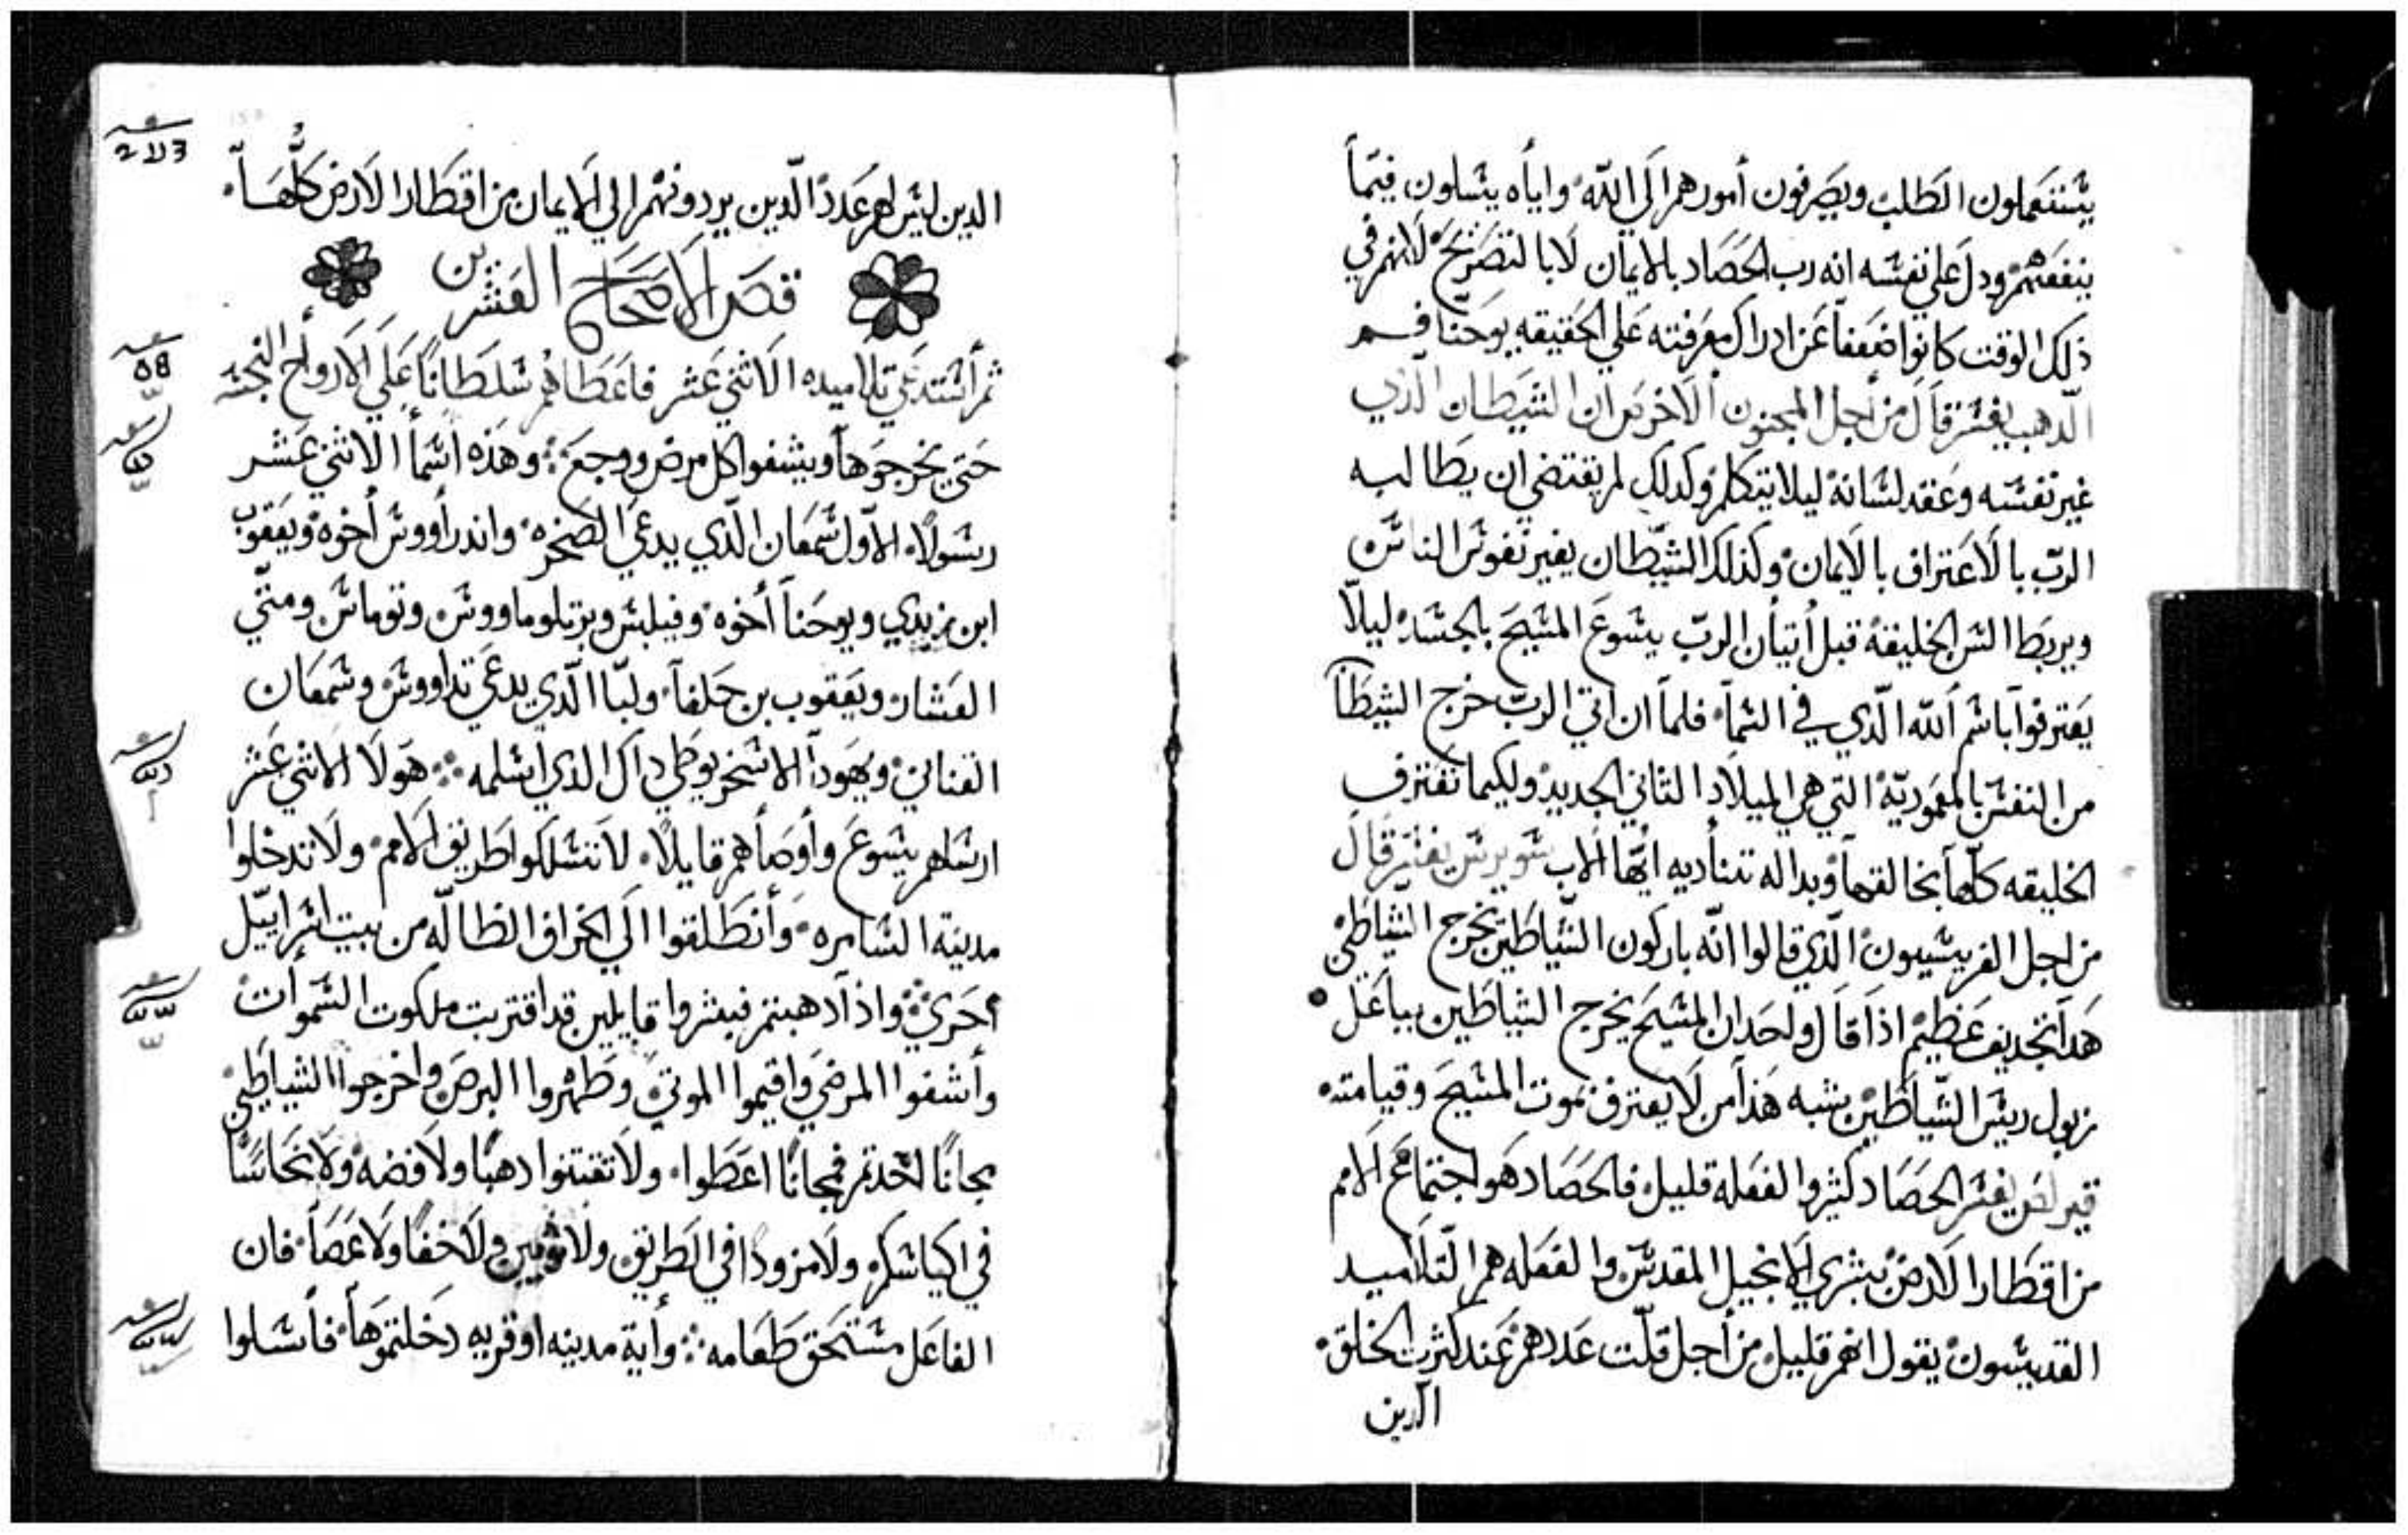 يستعملون الطلب ويصرفون أمورهم الَي اللّه وايأه يسلون فيمأ
ينفعهم ودل علي نفسه انه رب الحصاد بالايمان لابا لتصريح لانهم في
ذلك الوقت كانوا ضعفأ عن ادراك معرفته علي الحقيقه يوحنا فم
الدهب يفسر قال من أجل المجنون الاخرس ان الشيطان الدي
غير نفسه وعقد لسانه ليلا يتكلم وكدلك لم يقتضي ان يطالبه
الربّ با لاعتراف بالايمان وكذلك الشيطان يغير نفوس الناس
ويربط السن الخليقه قبل أتيأن الربّ يسوع المسيح بالجسد ليلّا
يعترفوا باسم ألله الّدي في السمأ فلمأ ان اتي الربّ خرج الشيطأن
من النفس بالمعموديّه التي هي الميلاد الثاني الجديد ولكيما تعترف
الخليقه كلّها بخالقهأ وبداله تنأديه ايّها الاب سويرس يفسر قال
من اجل الفريسيون الّدي قالوا انّه باركون الشّياطين يخرج الشياطين
هدا تجديف عظيم اذا قال واحد ان المسيح يخرج الشياطين بباعل
زبول رييس الشّياطين يشبه هذا من لا يعترف بموت المسيح وقيامته
قيرلص يفسر الحصاد كثير والفعله قليل فالحصاد هو اجتماع الامم
من اقطار الارض ببشري الانجيل المقدس والفعله هم التلاميد
القديسون يقول انهم قليل من أجل قلّت عددهم عند كثرت الخلق
الدين
2113
الدين ليس لهم عدد الّدين يردونهم الي الايمان من اقطار الارض كلّهأ
فص الاصحاح العشرين
58
ثم أستدعي تلاميده الاثني عشر فاعطاهم سلطانًا علي الارواح النجسه
حتي يخرجوهأ ويشفوا كل مرض ووجع وهذه اسمأ الاثني عشر
رسولًا الاّول سمعان الّدي يدعي الصخره واندرأووس أخوه ويعقوب
ابن زبدي ويوحنأ أخوه وفيلبس وبرتلوماووس وتوماس ومتّي
العشار ويعقوب بن حلفأ ولبّا الّدي يدعي تداووس وسمعان
القناني ويهودأ الاسخريوطي داك الدي اسلمه هولا الاثني عشر
ارسلهم يسوع وأوصأهم قايلًا لا تسلكوا طريق الامم ولا تدخلوا
مدينة السامره وأنطلقوا الي الخراف الضالّه من بيت اسراييل
أحري واذا ادهبتم فبشروا قايلين قد اقتربت ملكوت السموات
وأشفوا المرضي واقيموا الموتي وطهروا البرص واخرجوا الشياطين
مجانًا اخدتم فمجانًا اعطوا ولا تقتنوا دهبًا ولا فضه ولا نحاسًا
في اكياسكم ولا مزودًا في الطريق ولا ثوبين ولا خفًا ولا عصأ فان
الفاعل مستحق طعامه وأية مدينه او قريه دخلتموهأ فأسلوا